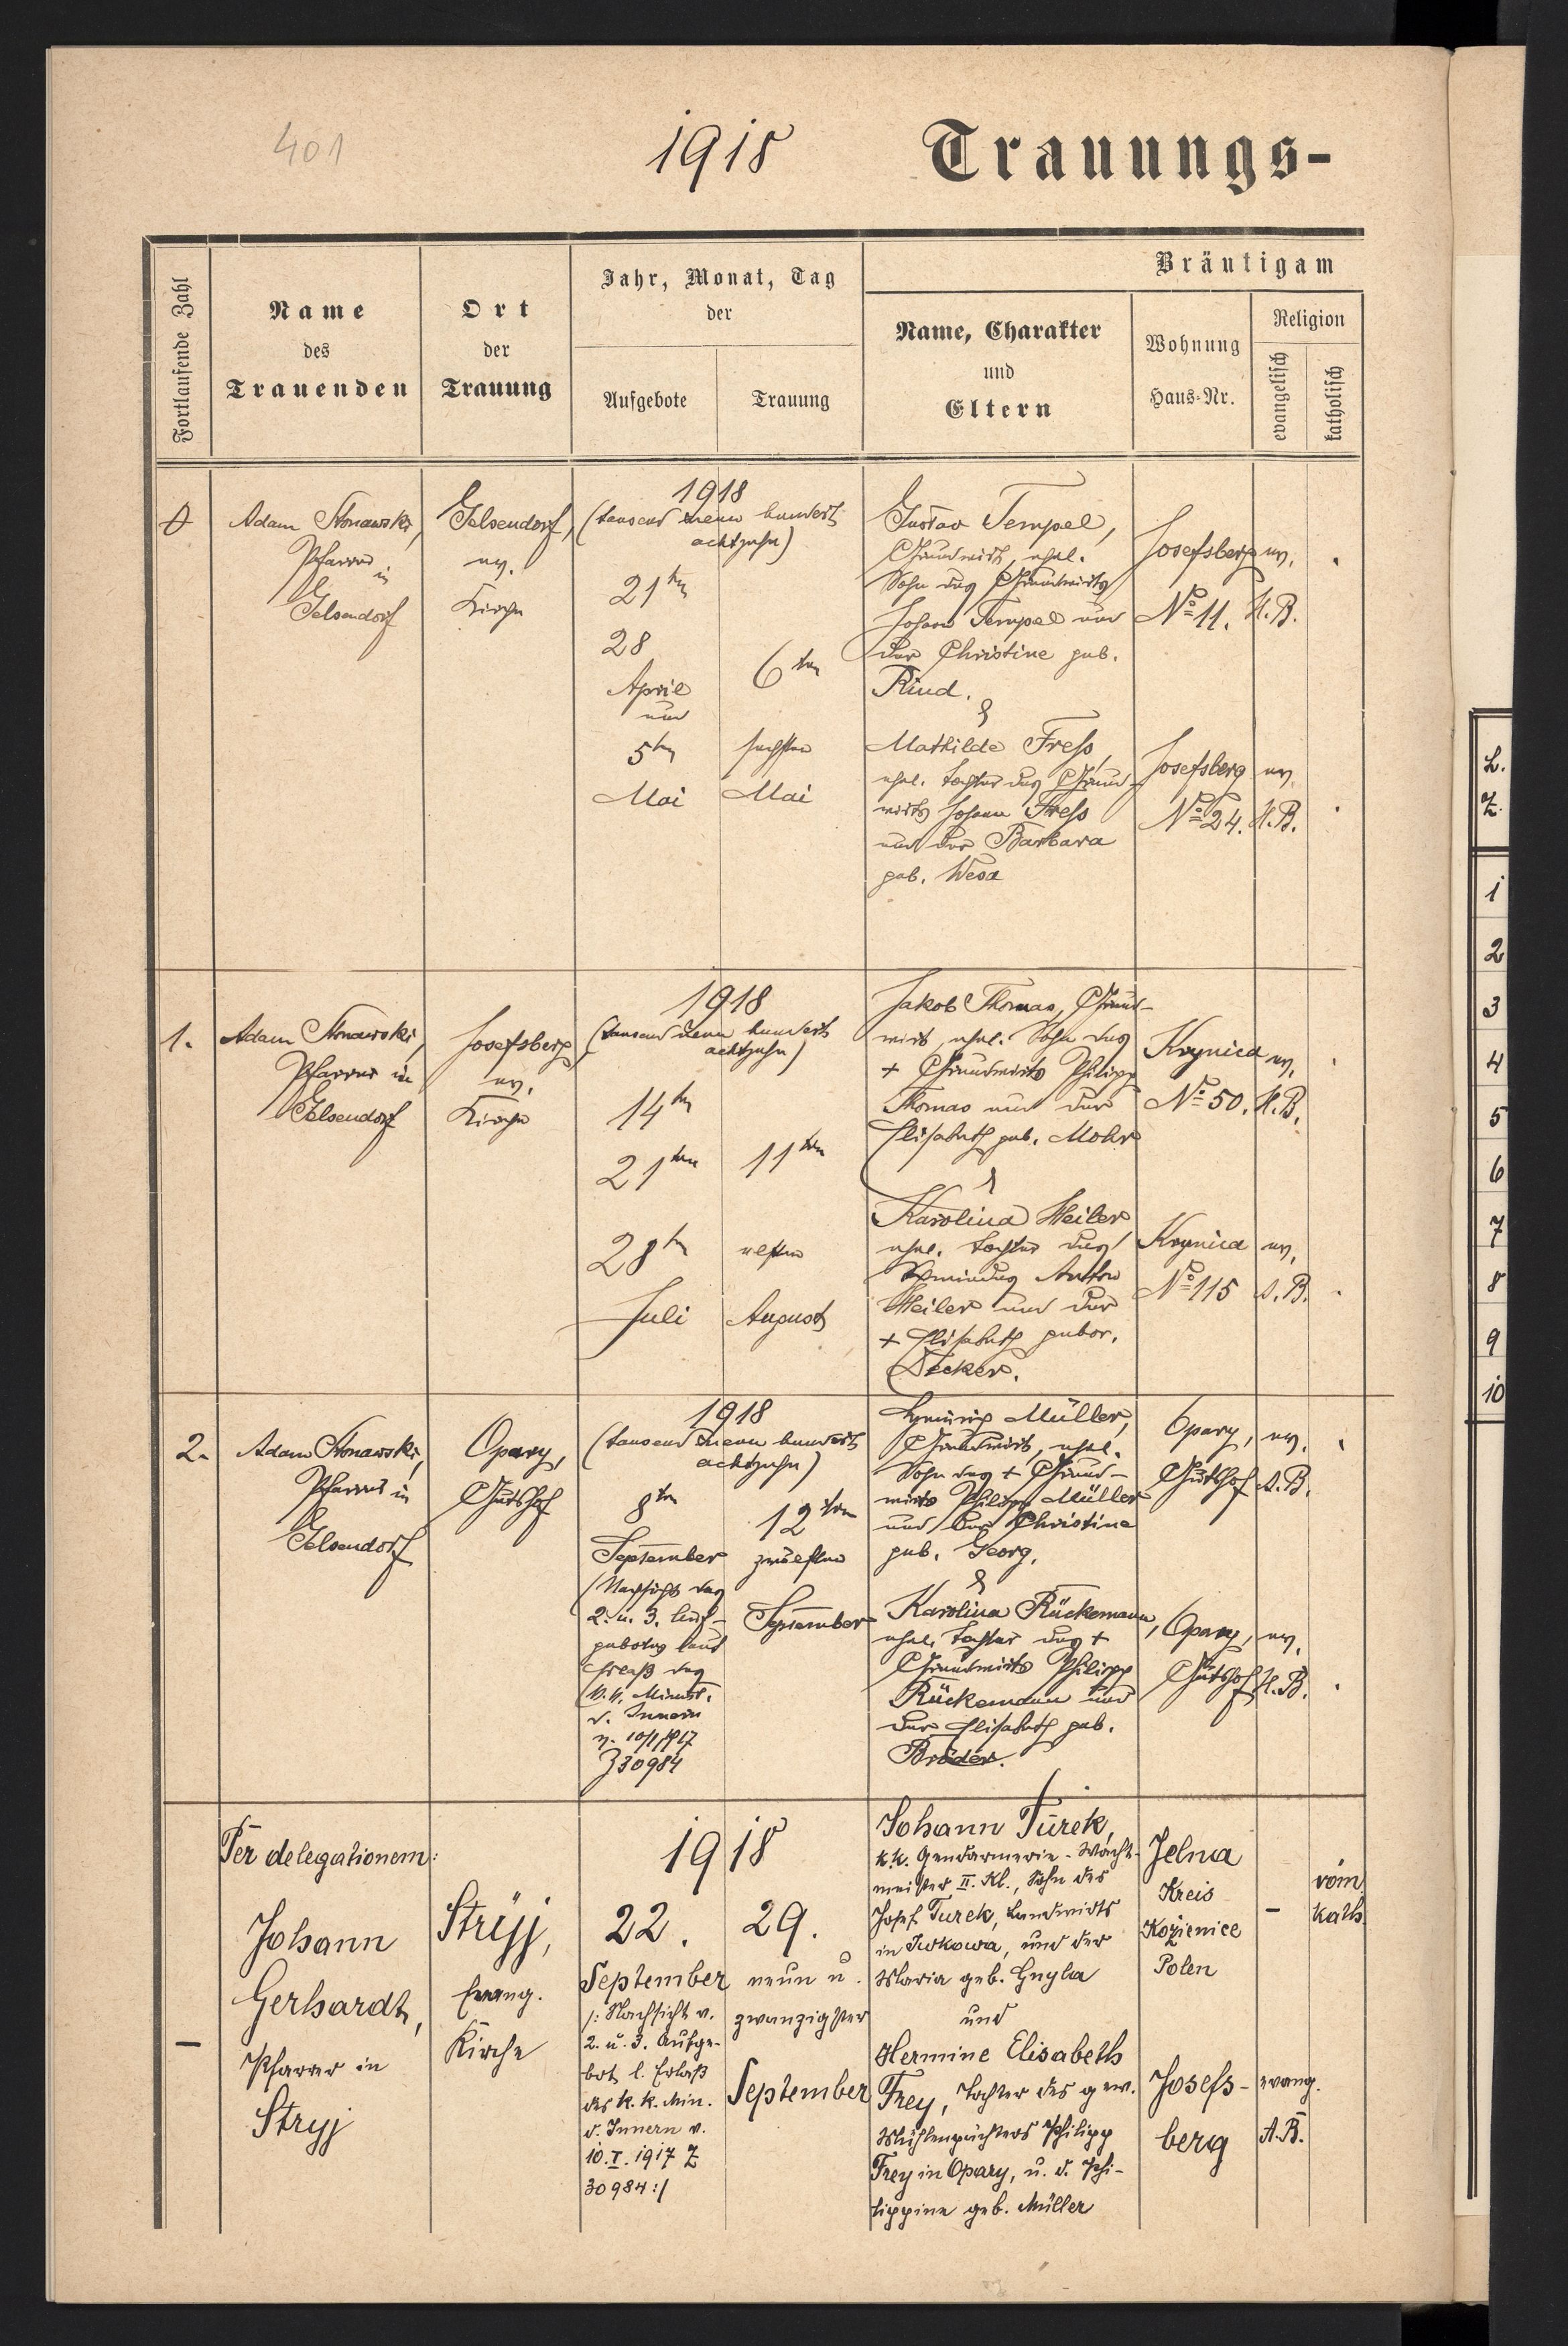 401
1918
Trauungs-
Fortlaufende Zahl
Name
des
Trauenden
Ort
der
Trauung
Jahr, Monat, Tag
der
Aufgebote
Trauung
Bräutigam
Name, Charakter
und
Eltern
Wohnung
Haus-Nr.
Religion
evangelisch
katholisch
Adam Stonawski,
Pfarrer
in
Gelsendorf
Gelsendorf,
ev.
Kirche
1918
(tausend neun hundert
achtzehn)
21ten
28
April
und
5ten
Mai
6ten
sechsten
Mai
Gustav Tempel,
Grundwirth, ehel.
Sohn des Grundwirts
Johann Tempel und
der Christine geb.
Rind.
&
Mathilde Freß,
ehel. Tochter des Grund-
wirts Johann Freß
und der Barbara
geb.
Josefsberg
No 11.
ev.
H. B.
Josefsberg
No 24.
ev.
H. B.
1.
Adam Stonawski,
Pfarrer in
Gelsendorf
Josefsberg
ev.
Kirche
1918
(tausend neun hundert
achtzehn)
14ten
21ten
28ten
Juli
11ten
elften
August
Jakob Thomas, Grund-
wirt, ehel. Sohn des
+ Grundwirts Philipp
Thomas und der
Elisabeth geb. Mohr
Karolina Heiler
ehel. Tochter des
Anton
Heiler und der
+ Elisabeth gebor.
Decker.
Krynica
No 50.
ev.
H. B.
Krynica
No 115
ev.
A. B.
2.
Adam Stonawski,
Pfarrer in
Gelsendorf
Opary,
Gutshof
1918
(tausend neun hundert
achtzehn)
8ten
September
(Nachsicht des
2. u. 3. Auf-
gebotes laut
Erlaß des
k. k. Minist.
d. Innern
v. 10/1 1917
Z 30984
12ten
zwölften
September
Müller,
Grundwirt, ehel.
Sohn des + Grund-
wirts Philipp Müller
und der Christine
geb. Georg.
&
Karolina Rückemann,
ehel. Tochter des +
Grundwirts Philipp
Rückemann und
der Elisabeth geb.
Bräder.
Opary,
Gutshof
ev.
A. B.
Opary,
Gutshof
ev.
H. B.
Per delegationem:
Johann
Gerhardt,
Pfarrer in
Stryj
–
Stryj,
Evang.
Kirche
1918
22.
September
/: Nachsicht v.
2. u. 3. Aufge-
bot l. Erlaß
des k. k. Min.
d. Innern v.
10. I. 1917 Z
30984 :/
29.
neun u.
zwanzigster
September
Johann Turek,
k.k. Gendarmerie-Wacht-
meister II. Kl., Sohn des
Josef Turek, Landwirts
in Iwkowa, und der
Maria geb. Gnyla
und
Hermine Elisabeth
Frey, Tochter des gew.
Mühlenpächters Philipp
Frey in Opary, u. d. Phi-
lippine geb. Müller
Jelna
Kreis
Kozienice
Polen
–
röm
kath
Josefs-
berg
evang.
A. B.
L.
Z.
1
2
3
4
5
6
7
8
9
10